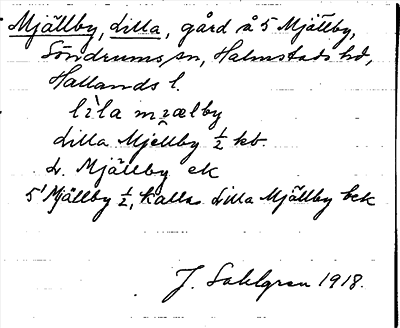 Mjällby, Lilla, gård å 5 Mjällby,
Söndrums sn, Halmstads hd,
Hallands l.
lìla mjælby
Lilla Mjellby ½ kb.
L. Mjällby ek
5 Mjällby ½, kallas Lilla Mjällby bek
J. Sahlgren 1918.